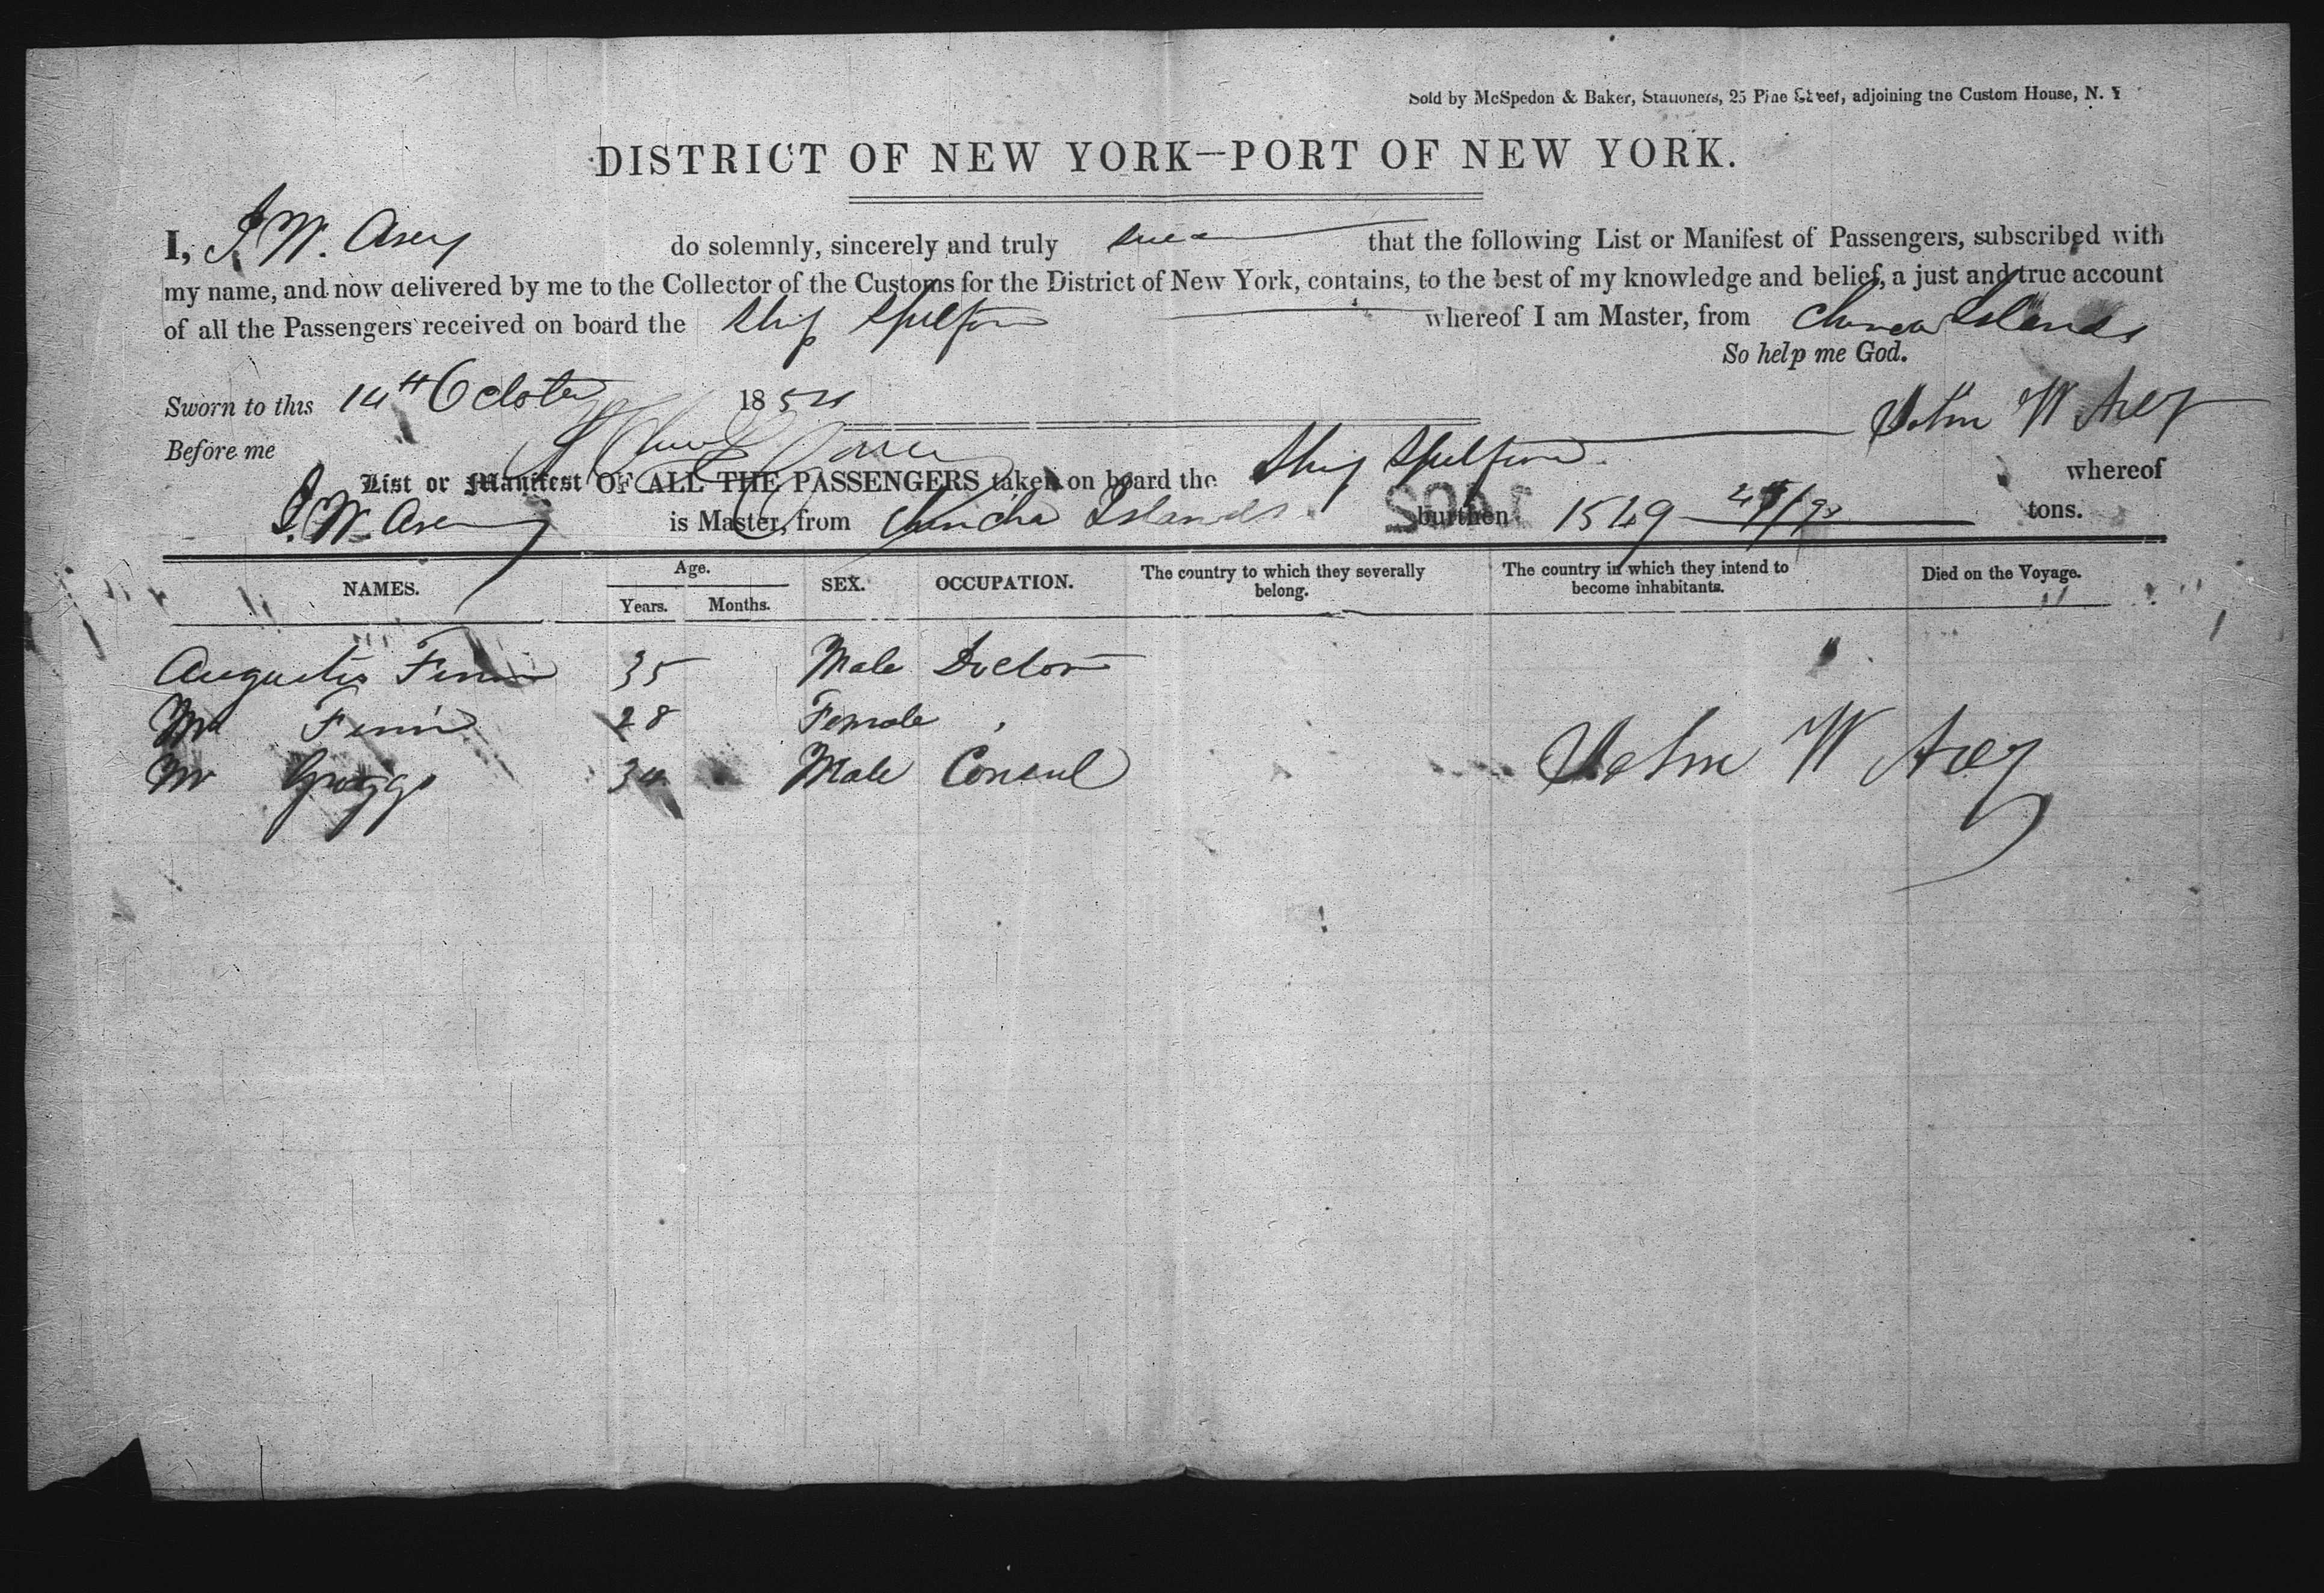 Sold by McSpedon & Baker, Stationers, 25 Pine Street, adjoining the Custom House, N. Y
DISTRICT OF NEW YORK—PORT OF NEW YORK.
I, J. W. Arey do solemnly, sincerely and truly swear that the following List or Manifest of Passengers, subscribed with
my name, and now delivered by me to the Collector of the Customs for the District of New York, contains, to the best of my knowledge and belief, a just and true account
of all the Passengers received on board the Ship whereof I am Master, from Chincha Islands
So help me God.
Sworn to this 14th October 1854
John W Arey
Before me
List or Manifest OF ALL THE PASSENGERS taken on board the Ship whereof
J. W. Arey is Master, from Chincha Islands burthen 1549 tons.
NAMES. Age. Years. Months. SEX. OCCUPATION. The country to which they severally belong. The country in which they intend to become inhabitants. Died on the Voyage.
Augustus 35 Male Doctor
28 Female
Mr Griggs 34 Male Consul
John W Arey